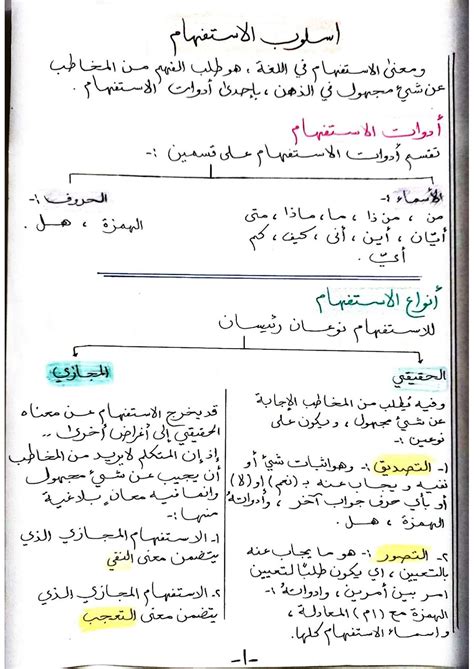 أسلوب الاستفهام
ومعنى الاستفهام في اللغة ، هو طلب الفهم من المخاطب
عن شيء مجهول في الذهن ، بإحدى أدوات الاستفهام .
أدوات الاستفهام
تقسم أدوات الاستفهام على قسمين :-
الأسماء :-
من ، من ذا ، ما ، ماذا ، متى
أيّان ، أين ، أنى ، كيف ، كم
أيّ .
الحروف :-
الهمزة ، هل .
أنواع الاستفهام
للاستفهام نوعان رئيسان
الحقيقي
وفيه يُطلب من المخاطب الإجابة
عن شيء مجهول ، ويكون على
نوعين :-
١- التصديق :- وهو اثبات شيء أو
نفيه ويجاب عنه بـ (نعم) او (لا)
أو بأي حرف جواب آخر ، وأدواتهُ
الهمزة ، هل .
٢- التصور :- هو ما يجاب عنه
بالتعيين ، اي يكون طلبًا لتعيين
امر بين أمرين ، وادواتهُ
الهمزة مع (ام) المعادلة ،
و اسماء الاستفهام كلها .
المجازي
قد يخرج الاستفهام عن معناه
الحقيقي إلى أغراض أخرى ..
إذ إن المتكلم لا يريد من المخاطب
أن يجيب عن شيء مجهول
وانما فيه معانٍ بلاغية
منها :-
١- الاستفهام المجازي الذي
يتضمن معنى النفي
٢. الاستفهام المجازي الذي
يتضمن معنى التعجب
-١-